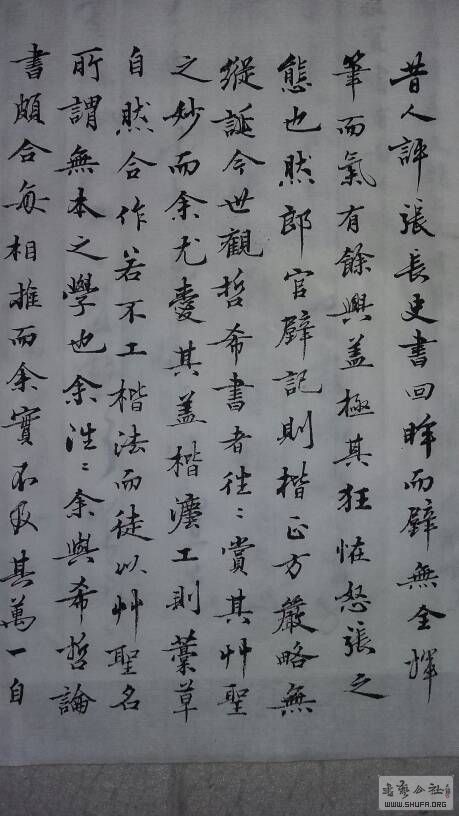 昔人評張長史書回眸而壁無全墻
筆而氣有餘興盖極其狂怪怒張之
態也然郎官壁記則楷正方嚴略無
縱誕今世觀哲希書者往〻賞其艸聖
之妙而余尤愛其盖楷灋工則藁草
自然合作若不工楷法而徒以艸聖名
所謂無本之學也余往〻余與希哲論
書頗合每相推而余實不及其萬一自
書藝公社
WWW.SHUFA.ORG